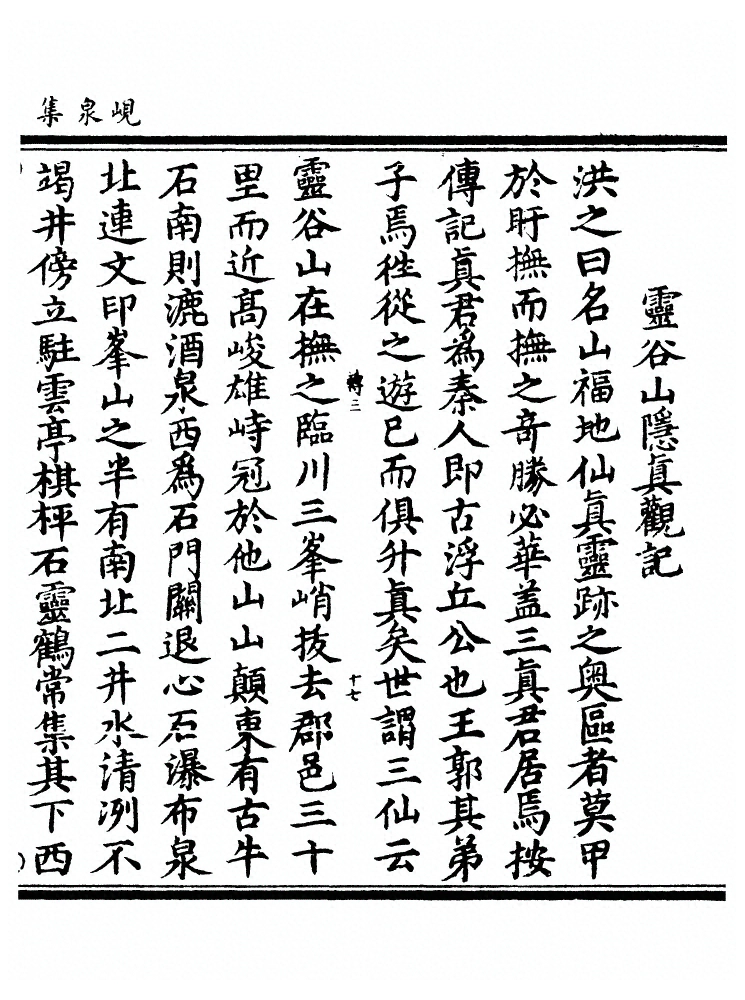 峴泉集
靈谷山隱眞觀記
洪之曰名山福地仙眞靈跡之奥區者莫甲
於盱撫而撫之竒勝必華盖三眞君居焉按
傳記眞君爲秦人即古浮丘公也王郭其弟
子焉徃從之遊已而俱升眞矣世謂三仙云
轉三
十七
靈谷山在撫之臨川三峯峭拔去郡邑三十
里而近髙峻雄峙冠於他山山顛東有古牛
石南則漉酒泉西爲石門關退心石瀑布泉
北連文印峯山之半有南北二井水清冽不
竭井傍立駐雲亭棋枰石靈鶴常集其下西